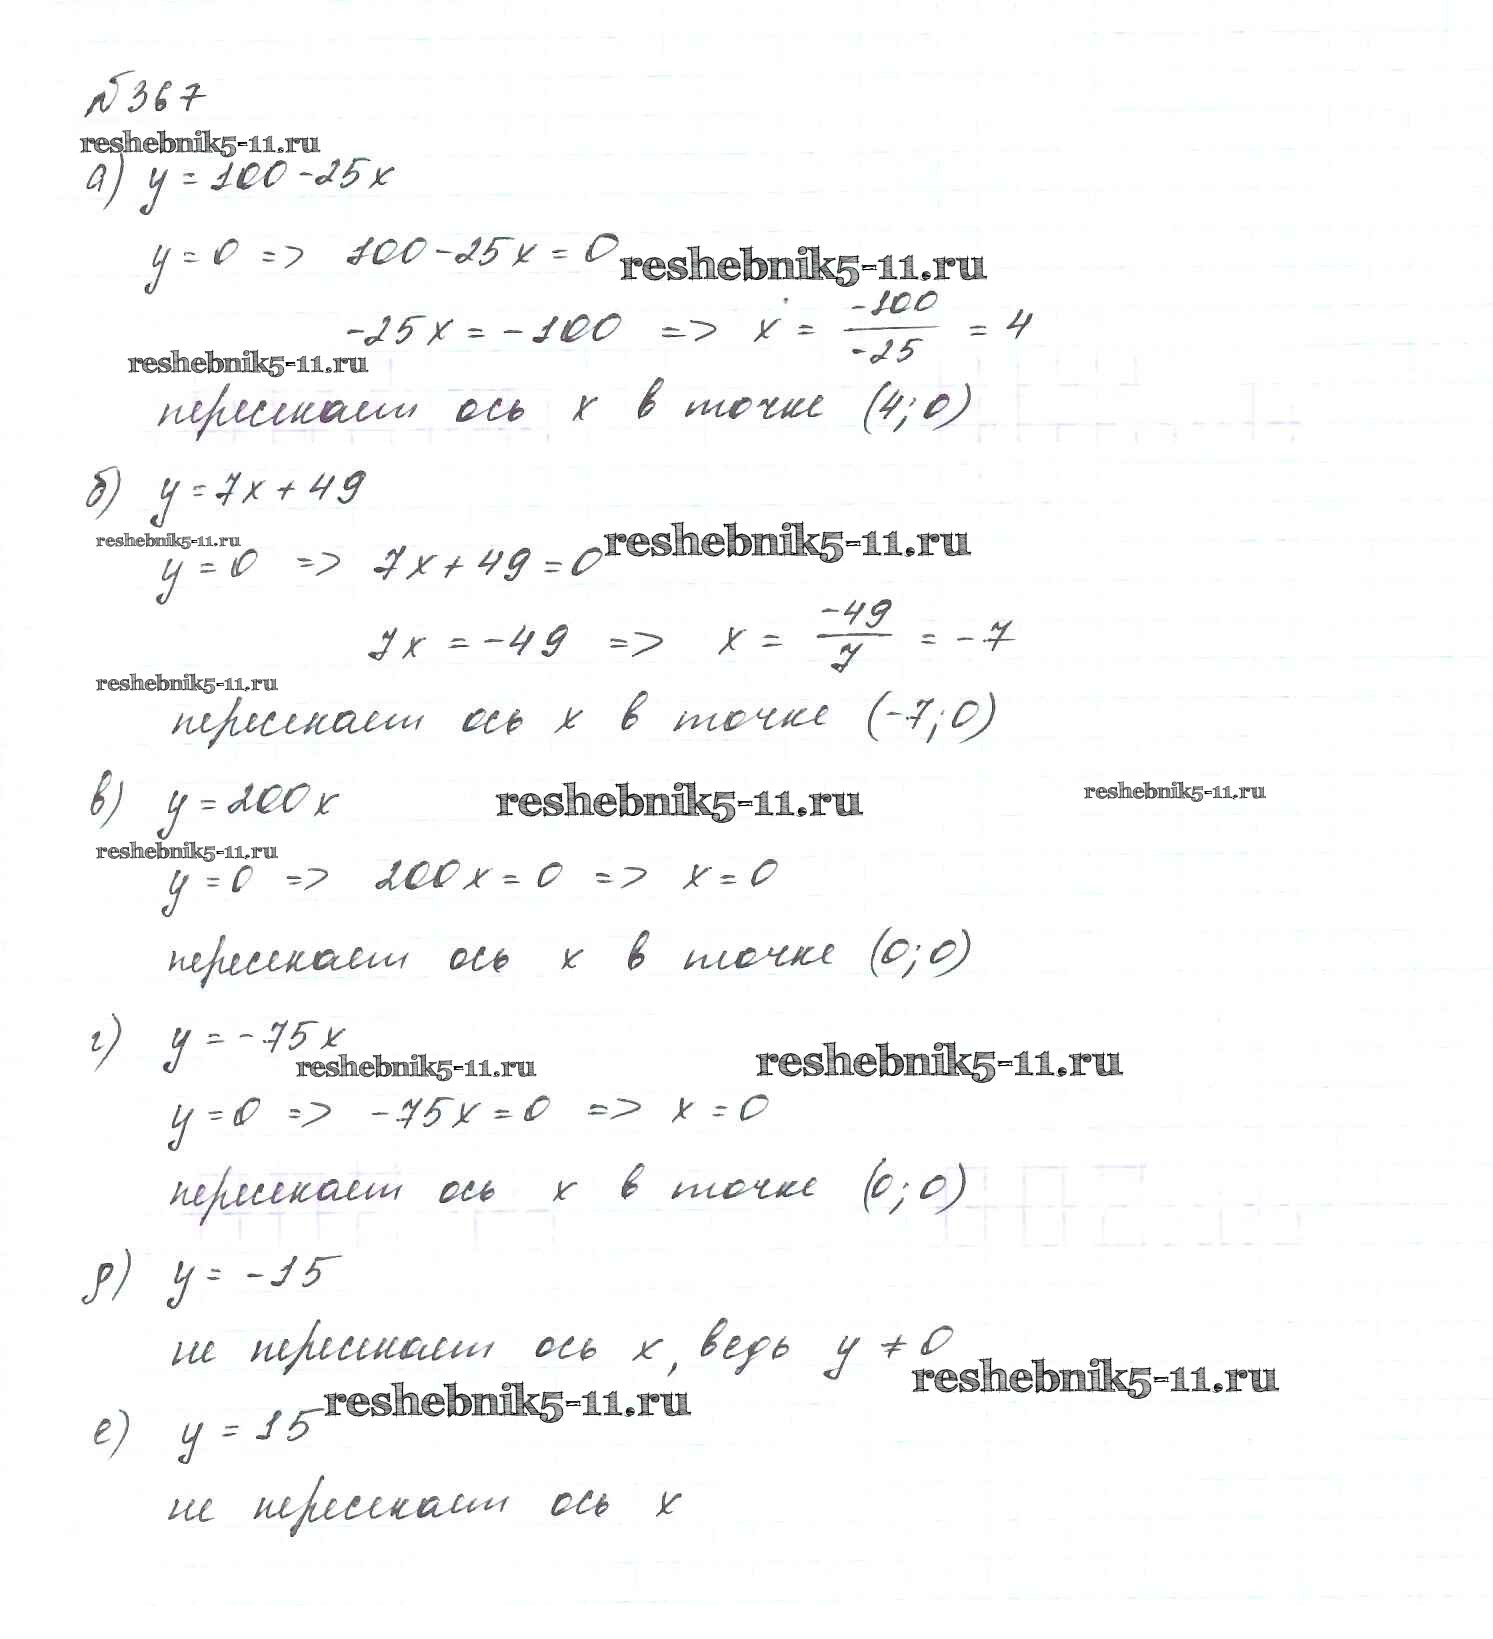 №367
reshebnik5-11.ru
а) y = 100 - 25x
y = 0 => 100 - 25x = 0
reshebnik5-11.ru
-25x = -100 => x = -100/-25 = 4
reshebnik5-11.ru
пересекает ось x в точке (4;0)
б) y = 7x + 49
reshebnik5-11.ru
reshebnik5-11.ru
y = 0 => 7x + 49 = 0
7x = -49 => x = -49/7 = -7
reshebnik5-11.ru
пересекает ось x в точке (-7;0)
в) y = 200x
reshebnik5-11.ru
reshebnik5-11.ru
reshebnik5-11.ru
y = 0 => 200x = 0 => x = 0
пересекает ось x в точке (0;0)
г) y = -75x
reshebnik5-11.ru
reshebnik5-11.ru
y = 0 => -75x = 0 => x = 0
пересекает ось x в точке (0;0)
д) y = -15
не пересекает ось x, ведь y ≠ 0
reshebnik5-11.ru
reshebnik5-11.ru
е) y = 15
не пересекает ось x